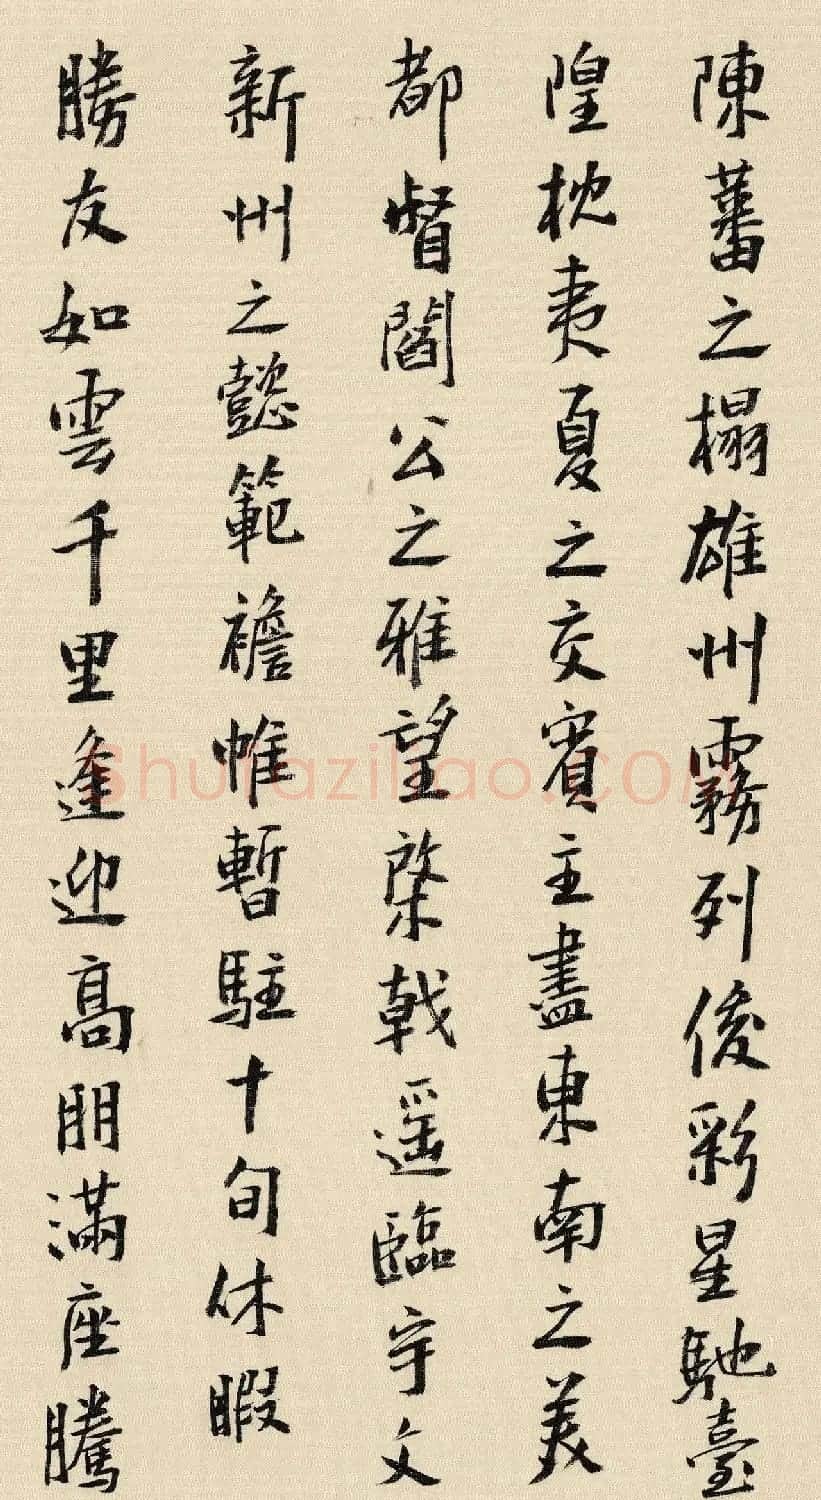 陳蕃之榻雄州霧列俊彩星馳臺
隍枕夷夏之交賓主盡東南之美
都督閻公之雅望棨戟遥臨宇文
新州之懿範襜帷暫駐十旬休暇
勝友如雲千里逢迎高朋滿座騰
shufaziliao.com